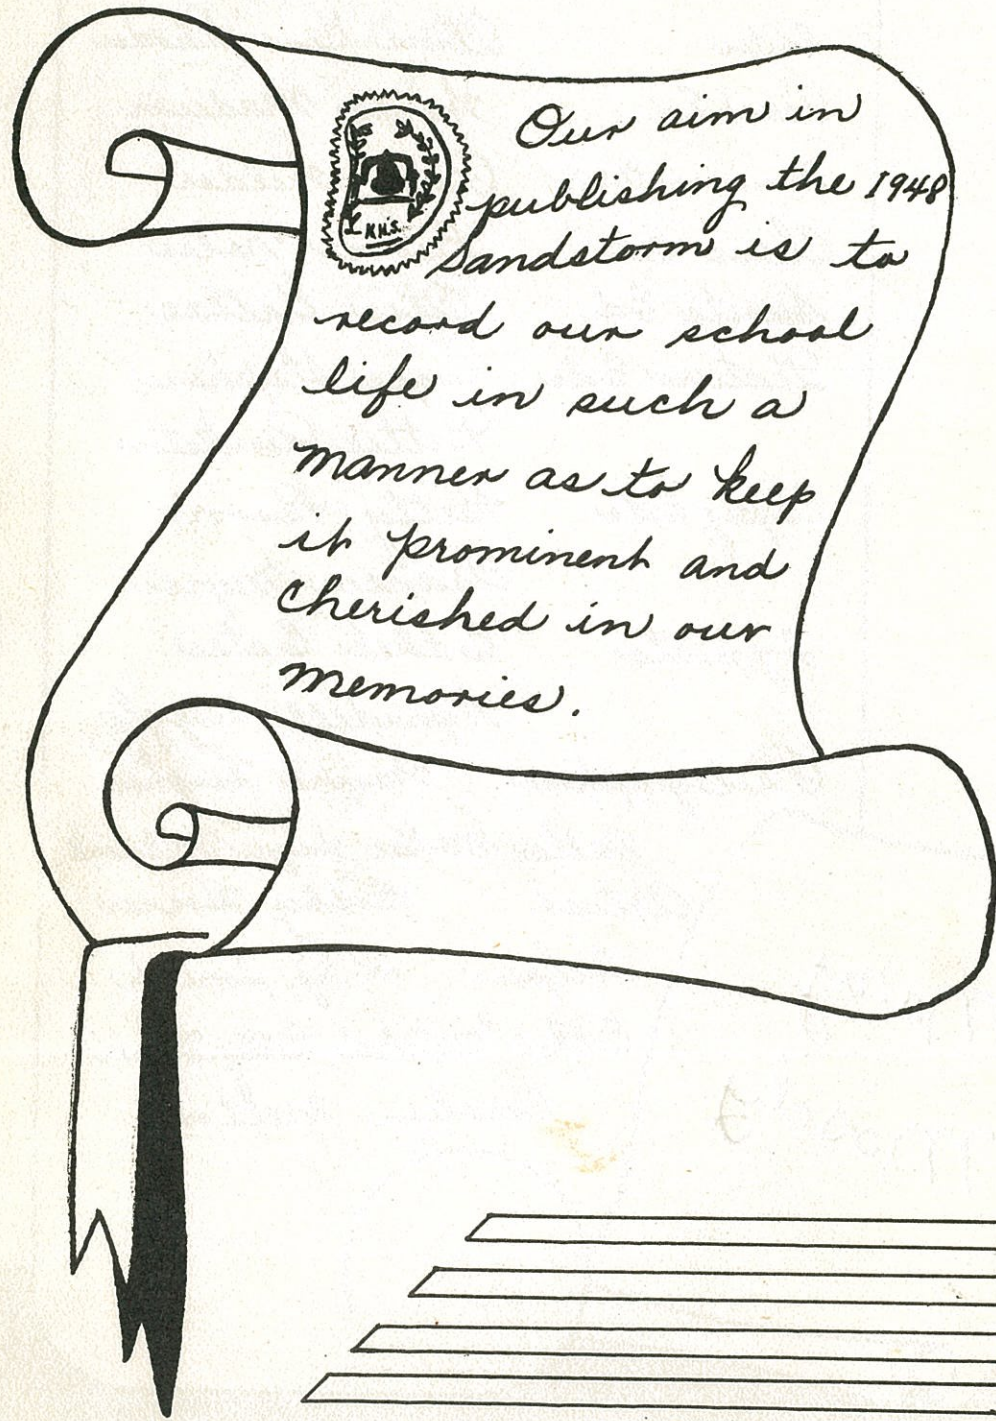 Our aim in
publishing the 1948
Sandstorm is to
record our school
life in such a
manner as to keep
it prominent and
cherished in our
memories.
K.H.S.